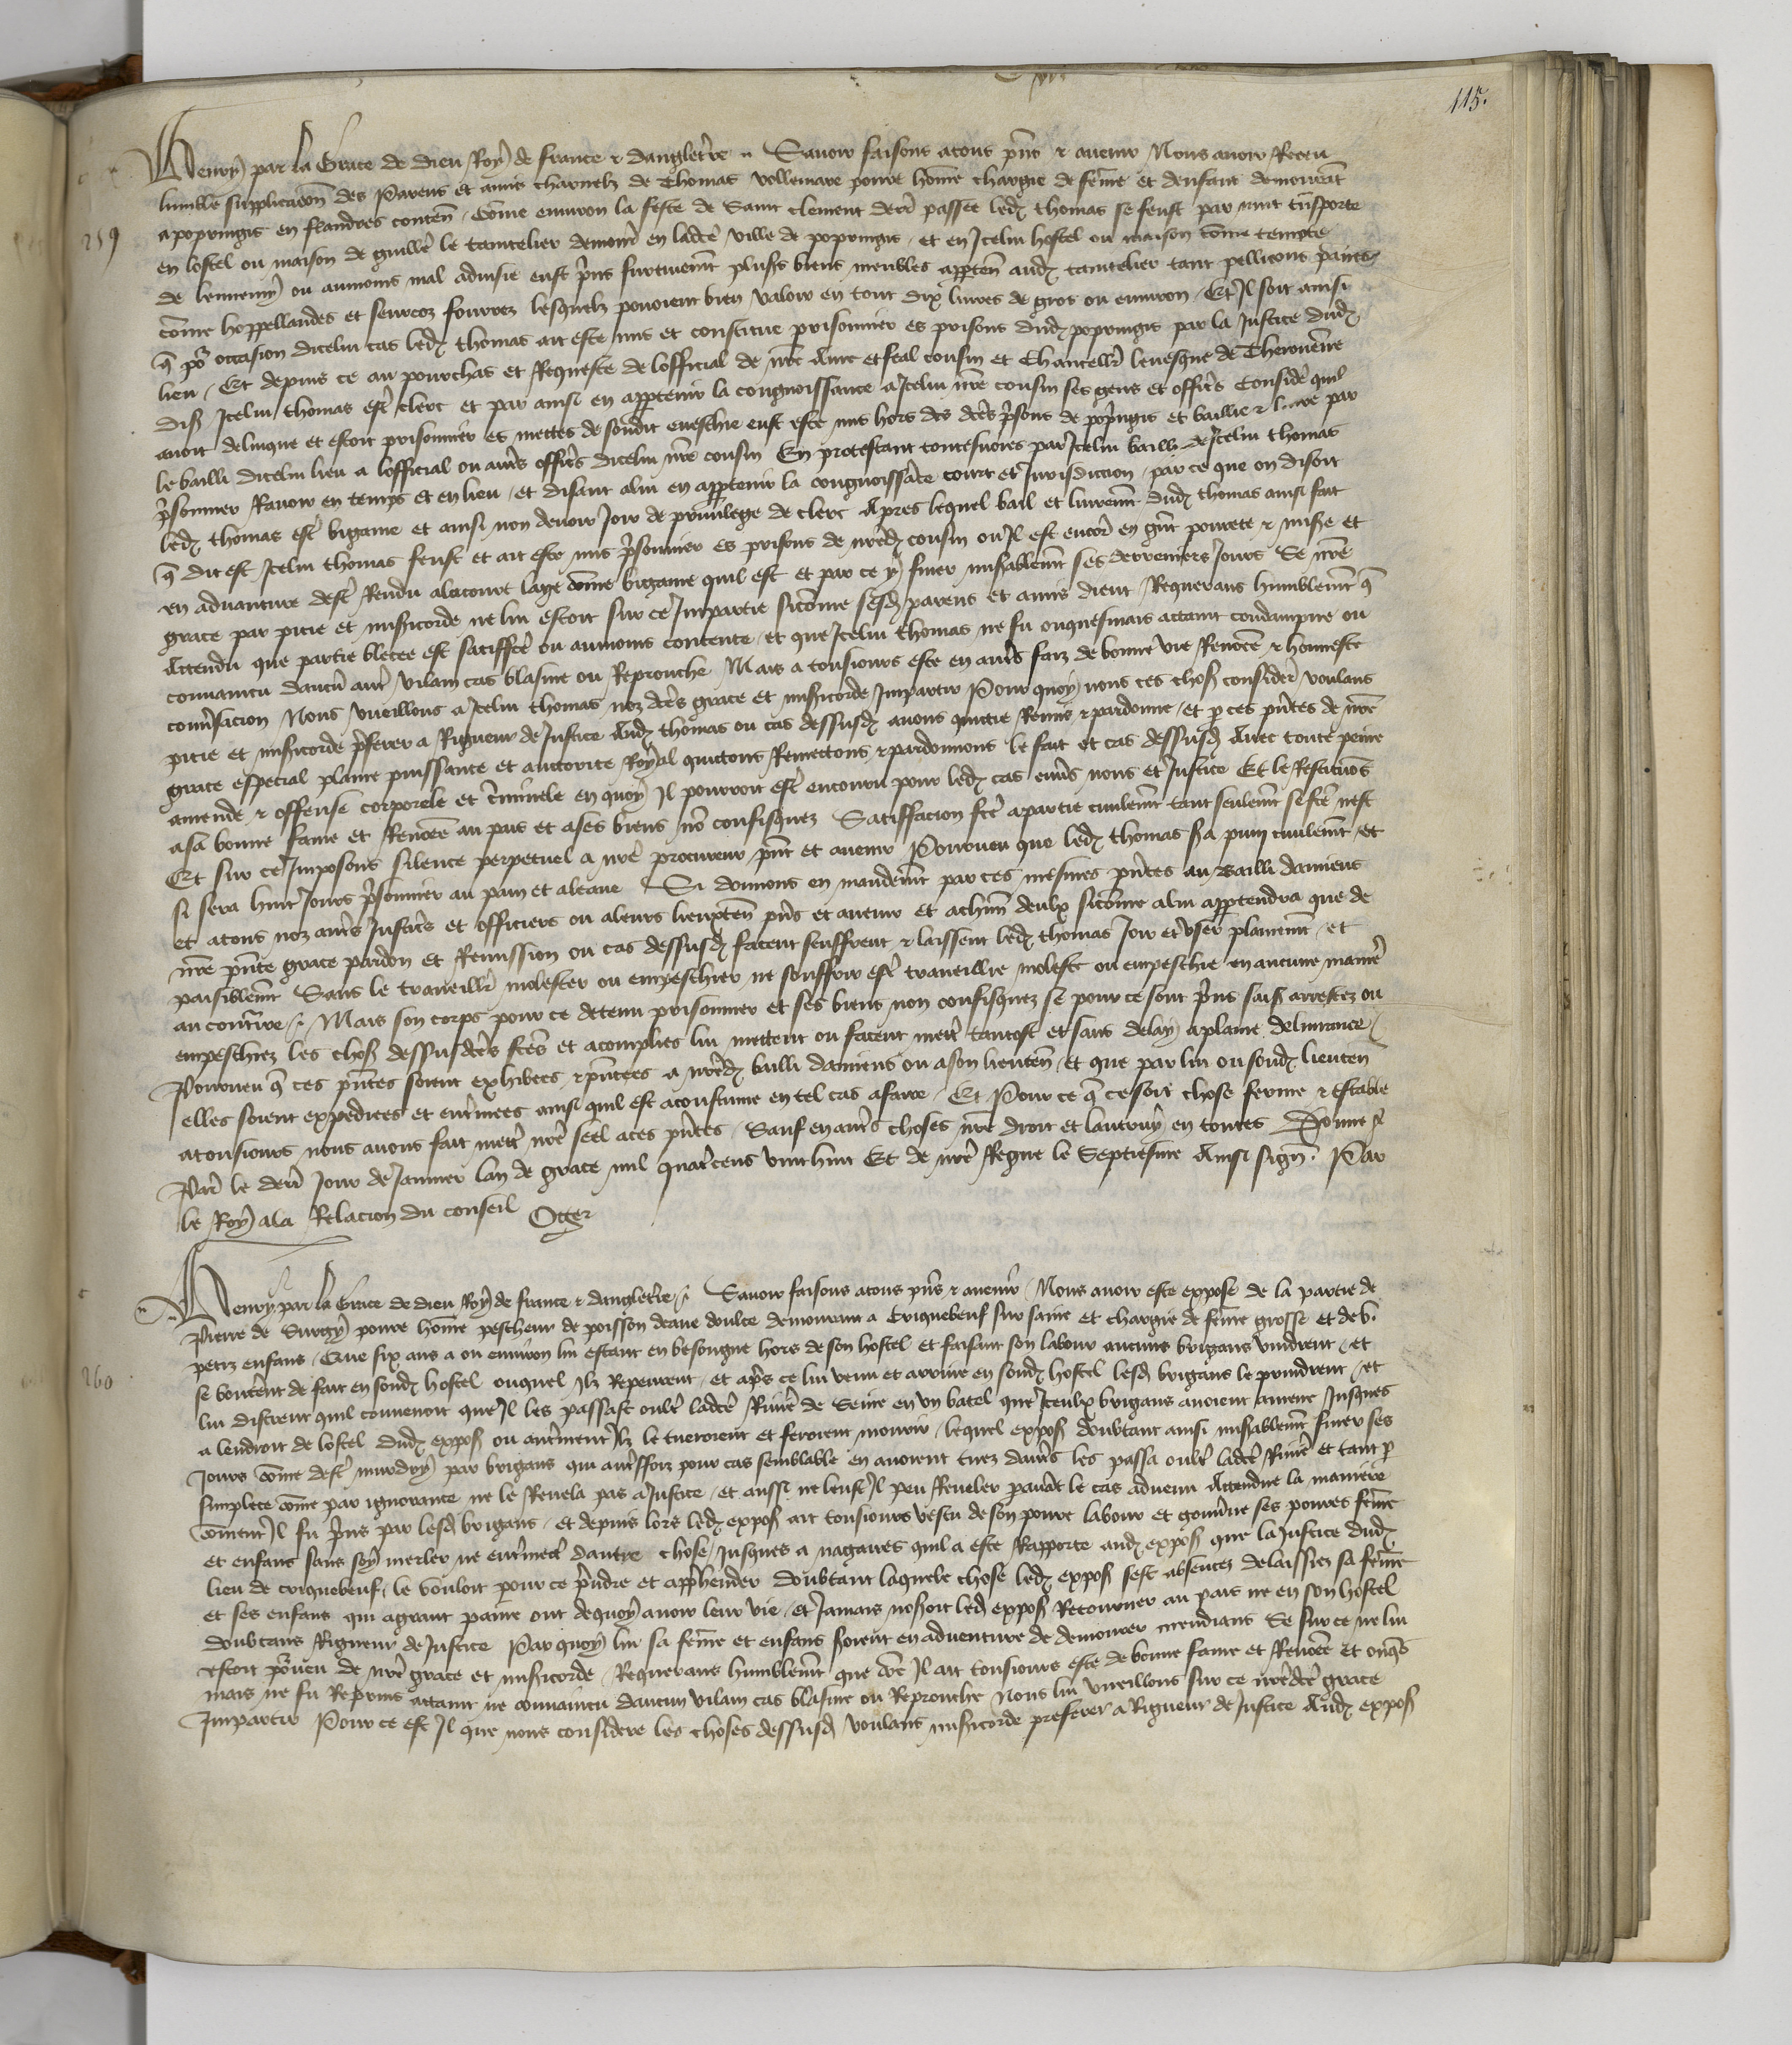 115.
Henry par la grace de dieu Roy de france & dangleterre Savoir faisons atous pns & avenir Nous avoir Receu
lumble supplicacion des Parens et amis charnelz de Thomas vollemare povre home chargie de feme et denfant demourat
259
apopringis en flandres conten Come environ la feste de Saint clement derr passee led thomas se feust par nuit tnsporte
en lostel ou maison de guille le taintelier demour en ladce ville de popringis et en Icelui hostel ou maison come tempte
de lennemy ou aumoins mal advisie eust pns furtivemt plus biens meubles apparten aud taintelier tant pellicons pances
come hoppellandes et seurcoz fourrez lesquelz povoient bien valoir en tout dix livres de gros ou environ Et Il soit ainsi
q por occasion dicelui cas led thomas ait este mis et constitue prisonnier es prisons dud popringis par la Justice dud
lieu Et depuis ce au pourchas et Requeste de lofficial de nre Ame et feal cousin et Chancellr levesque de Therouenne
dis Icelui thomas estre clerc et par ainsi en appartenir la congnoissance a Icelui nre cousin ses gens et offics Considere quil
avoit delinque et estoit prisonnier es mettes de sondit eveschie eust este mis hors des dces prisons de popringis et baillie & livre par
le bailli dicelui lieu a lofficial ou aures offics dicelui nre cousin En protestant toutesvoies par Icelui bailli de Icelui thomas
prisonnier Ravoir en temps et en lieu et disant alui en appartenir la congnoissace court et Jurisdiction par ce que on disoit
led thomas estre bigame et ainsi non devoir Joir de privilege de clerc Apres lequel bail et livremt dud thomas ainsi fait
q dit est Icelui thomas feust et ait este mis prisonnier es prisons de nred cousin ou Il est encor en gnt povrete & misere et
en advanture destre Rendu alacourt laye come bigame quil est et par ce y finer misablemt ses derreniers Jours Se nre
grace par pitie et misicorde ne lui estoit sur ce Impartie sicome sesd parens et amis dient Requerans humblemt q
Attendu que partie blecee est satiffte ou aumoins contente et que Icelui thomas ne fu onquesmais attaint condampne ou
convaincu daucun autre vilain cas blasme ou Reprouche Mais a tousiours este en aures faiz de bonne vie Renomee & honneste
conversacion Nous vueillons a Icelui thomas noz dces grace et misicorde Impartir Pour quoy nous ces choses consideres voulans
pitie et misicorde preferer a Rigueur de Justice Aud thomas ou cas dessusd avons quictie Remis & pardonne et p ces pntes de nre
grace especial plaine puissance et auctorite Royal quictons Remettons & pardonnons le fait et cas dessusd Avec toute peine
amende & offense corporele et criminele en quoy Il pourroit estre encouru pour led cas envers nous et Justice Et le Restituons
asa bonne fame et Renomee au pais et ases biens no confisquez Satiffacion fte apartie civilemt tant seulemt se fte nest
Et sur ce Imposons silence perpetuel a nre procureur pnt et avenir Pourveu que led thomas sera puny civilemt et
si sera huit Jours prisonnier au pain et aleaue Si donnons en mandemt par ces mesmes pntes au Bailli damiens
et atous noz aures Justics et officiers ou aleurs lieuxten pns et avenir et achun deulx sicome alui appartendra que de
nre pnte grace pardon et Remission ou cas dessusd facent seuffrent & laissent led thomas Joir et user plainemt et
paisiblemt Sans le traveillr molester ou empeschier ne souffrir estre traveillie moleste ou empeschie en aucune maniere
au contraire Mais son corps pour ce detenu prisonnier et ses biens non confisquez se pour ce sont pns saisis arrestez ou
empeschiez les choses dessusdces ftes et acomplies lui mettent ou facent mettre tantost et sans delay aplaine delivrance
Pourveu q ces pntes soient exhibees & pntees a nred bailli damiens ou ason lieuten et que par lui ou sond lieuten
elles soient expediees et enterinees ainsi quil est acoustume en tel cas afaire Et Pour ce q ce soit chose ferme & estable
atousiours nous avons fait mettre nre seel aces pntes Sauf en aures choses nre droit et lautruy en toutes Donne a
Paris le derr Jour de Janvier lan de grace mil quatrecens vint huit Et de nre Regne le Septiesme Ainsi signe Par
le Roy ala Relacion du conseil Oger
Henry par la grace de dieu Roy de france & dangleterre Savoir faisons atous pns & avenir Nous avoir este expose de la partie de
Pierre de Surgy povre home pescheur de poisson deaue doulce demourant a Criquebeuf sur saine et chargie de feme grosse et de v.
260
petiz enfans Que six ans a ou environ lui estant en besongne hors de son hostel et faisant son labour aucuns brigans vindrent et
se bouterent de fait en sond hostel ouquel Ilz Repeurent et apres ce lui venu et arrive en sond hostel lesd brigans le prindrent et
lui distrent quil convenoit que Il les passast oultre ladce Riviere de Seine en un batel que Iceulx brigans avoient amene Jusques
a lendroit de lostel dud expos ou autrement Ilz le tueroient et feroient mourir lequel expos doubtant ainsi misablemt finer ses
Jours come destre murdry par brigans qui autresfoiz pour cas semblable en avoient tuez daures les passa oultre ladce Riviere et tant p
simplece come par ignorance ne le Revela pas a Justice et aussi ne leust Il peu Reveler pavat le cas advenu Attendue la maniere
coment Il fu pns par lesd brigans et depuis lors led expos ait tousiours vescu de son povre labour et gouverne ses povres feme
et enfans sans soy mesler ne entremettre dautre chose Jusques a nagaires quil a este Rapporte aud expos que la Justice dud
lieu de criquebeuf le vouloit pour ce prendre et apprehender doubtant laquele chose led expos sest absentez delaissiez sa feme
et ses enfans qui agrant paine ont dequoy avoir leur vie et Jamais noseroit led expos Retourner au pais ne en son hostel
doubtans Rigueur de Justice Par quoy lui sa feme et enfans seroient en adventure de demourer mendians Se sur ce ne lui
estoit pourveu de nre grace et misicorde Requerans humblemt que come Il ait tousiours este de bonne fame et Renomee et onqs
mais ne fu Reprins attaint ne convaincu daucun vilain cas blasme ou Reprouche Nous lui vueillons sur ce nredce grace
Impartir Pour ce est Il que nous considere les choses dessusd voulans misicorde preferer a Rigueur de Justice Aud expos